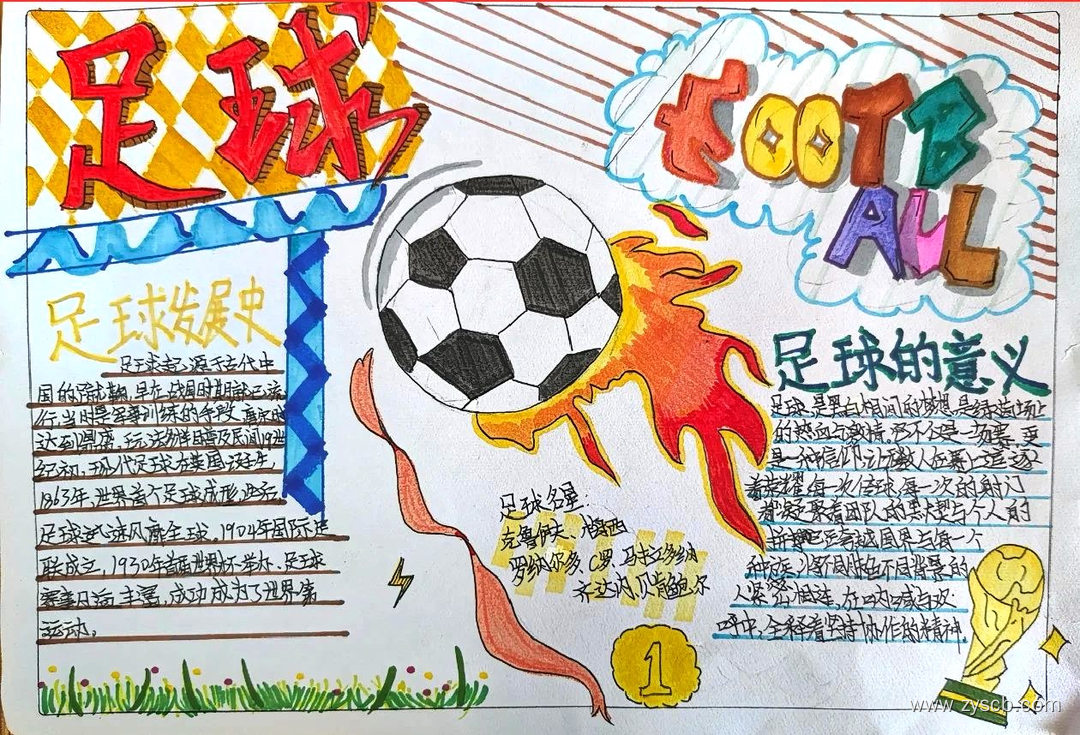 足球
FOOTB
ALL
足球发展史
足球起源于古代中
国的蹴鞠,早在战国时期就已流
行,当时是军事训练的手段,唐宋时
达到鼎盛,玩法多样且普及民间19世
纪初,现代足球在英国诞生,
1863年,世界首个足球成形,此后
足球迅速风靡全球,1904年国际足
联成立,1930年首届世界杯举办、足球
赛事日益丰富,成功成为了世界第
运动。
足球名星:
克鲁伊夫、梅西
罗纳尔多、C罗、马拉多纳
齐达内、贝肯鲍尔
1
足球的意义
足球,是黑白相间的梦想,是绿茵场上
的热血与激情,它不仅是一场赛,更
是一种信仰,让无数人在赛上追逐
着荣耀,每一次传球,每一次的射门
都凝聚着团队的默契与个人的
拼搏它穿越国界与每一个
种族,将不同肤色不同背景的
人紧密相连,在呐喊与欢
呼中,全释着坚持协作的精神,
www.zyscb.com